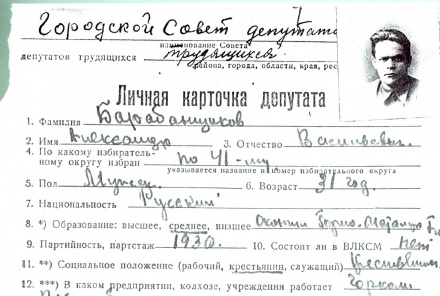 Городской Совет депутато
наименование Совета
депутатов трудящихся трудящихся
района, города, области, края, рес
Личная карточка депутата
1. Фамилия Барабанщиков
2. Имя Александр 3. Отчество Васильевич
4. По какому избиратель-
ному округу избран по 41-му
указывается название и номер избирательного округа
5. Пол Мужск. 6. Возраст 31 год
7. Национальность Русский
8. *) Образование: высшее, среднее, низшее Окончил
9. Партийность, партстаж 1930. 10. Состоит ли в ВЛКСМ нет
11. **) Социальное положение (рабочий, крестьянин, служащий)
12. ***) В каком предприятии, колхозе, учреждении работает Горком